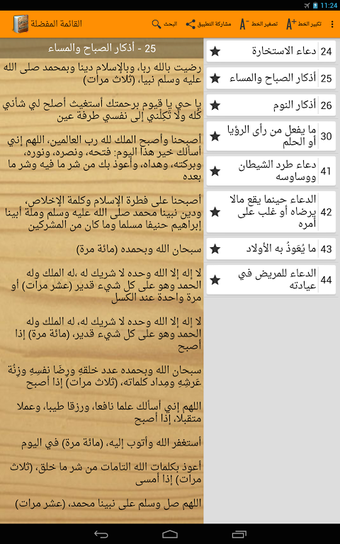 11:24
القائمة المفضلة
البحث
مشاركة التطبيق
تصغير الخط
تكبير الخط
25 - أذكار الصباح والمساء
رضيت بالله ربا، وبالإسلام دينا وبمحمد صلى الله
عليه وسلم نبيا، (ثلاث مرات)
يا حي يا قيوم برحمتك أستغيث أصلح لي شأني
كله ولا تكلني إلى نفسي طرفة عين
أصبحنا وأصبح الملك لله رب العالمين، اللهم إني
أسألك خير هذا اليوم: فتحه، ونصره، ونوره،
وبركته، وهداه، وأعوذ بك من شر ما فيه وشر ما
بعده
أصبحنا على فطرة الإسلام وكلمة الإخلاص،
ودين نبينا محمد صلى الله عليه وسلم وملة أبينا
إبراهيم حنيفا مسلما وما كان من المشركين
سبحان الله وبحمده (مائة مرة)
لا إله إلا الله وحده لا شريك له ،له الملك وله
الحمد وهو على كل شيء قدير (عشر مرات) أو
مرة واحدة عند الكسل
لا إله إلا الله وحده لا شريك له، له الملك وله
الحمد وهو على كل شيء قدير (مائة مرة) إذا
أصبح
سبحان الله وبحمده عدد خلقه ورضا نفسه وزنة
عرشه ومداد كلماته، (ثلاث مرات) إذا أصبح
اللهم إني أسألك علما نافعا، ورزقا طيبا، وعملا
متقبلا، إذا أصبح
أستغفر الله وأتوب إليه، (مائة مرة) في اليوم
أعوذ بكلمات الله التامات من شر ما خلق، (ثلاث
مرات) إذا أمسى
اللهم صل وسلم على نبينا محمد، (عشر مرات)
24 دعاء الاستخارة
25 أذكار الصباح والمساء
28 أذكار النوم
30 ما يفعل من رأى الرؤيا
أو الحلم
41 دعاء طرد الشيطان
ووساوسه
42 الدعاء حينما يقع مالا
يرضاه أو غلب على
أمره
43 ما يُعَوذُ به الأولاد
44 الدعاء للمريض في
عيادته